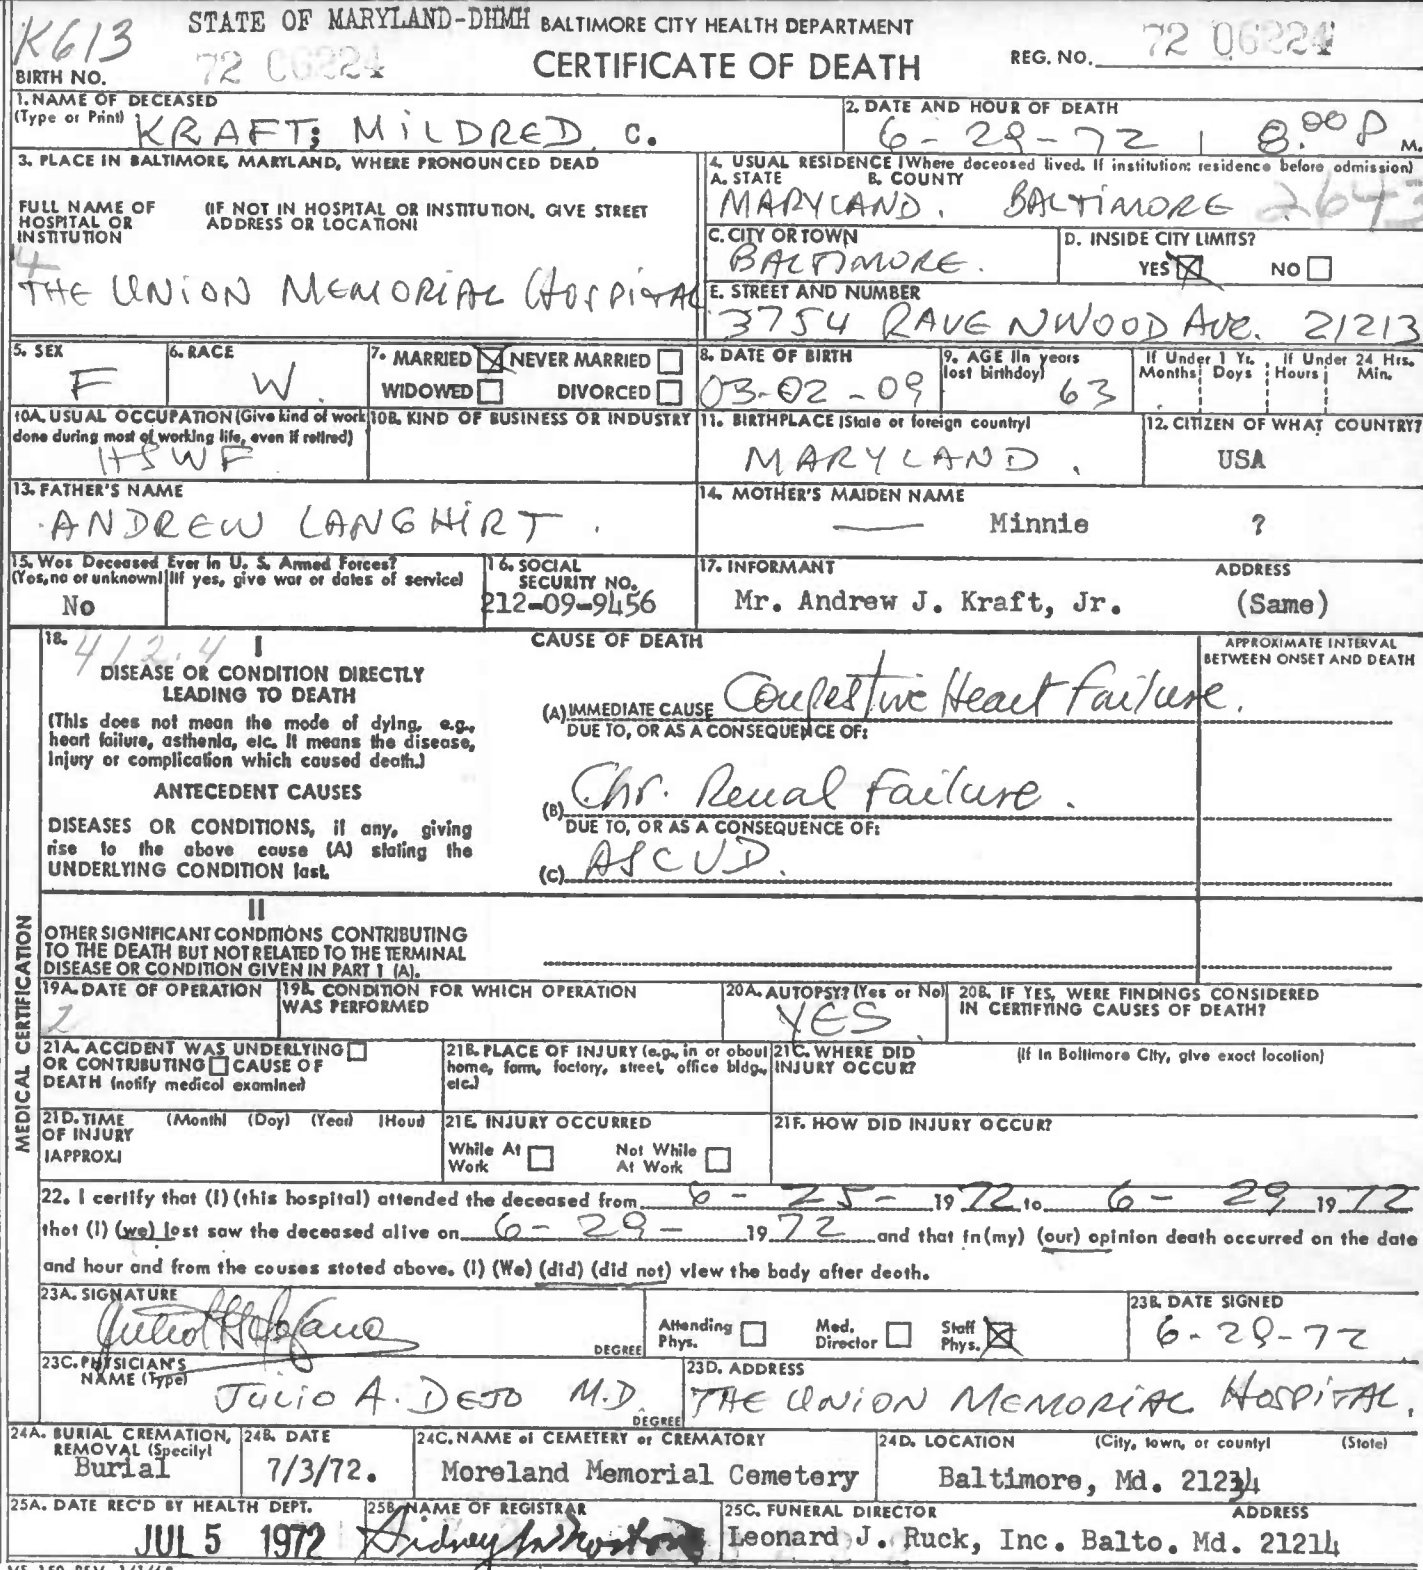 K613 STATE OF MARYLAND-DHMH BALTIMORE CITY HEALTH DEPARTMENT
BIRTH NO. 72 06224 CERTIFICATE OF DEATH REG. NO. 72 06224
1. NAME OF DECEASED (Type or Print) KRAFT; MILDRED C.
2. DATE AND HOUR OF DEATH 6-29-72 8.00 P M.
3. PLACE IN BALTIMORE, MARYLAND, WHERE PRONOUNCED DEAD
FULL NAME OF HOSPITAL OR INSTITUTION (IF NOT IN HOSPITAL OR INSTITUTION, GIVE STREET ADDRESS OR LOCATION)
THE UNION MEMORIAL HOSPITAL
4. USUAL RESIDENCE (Where deceased lived. If institution: residence before admission)
A. STATE B. COUNTY
MARYLAND. BALTIMORE 2643
C. CITY OR TOWN BALTIMORE.
D. INSIDE CITY LIMITS? YES NO
E. STREET AND NUMBER
3754 RAVENWOOD AVE. 21213
5. SEX F
6. RACE W.
7. MARRIED NEVER MARRIED
WIDOWED DIVORCED
8. DATE OF BIRTH 03-02-09
9. AGE (In years last birthday) 63
If Under 1 Yr. Months Days If Under 24 Hrs. Hours Min.
10A. USUAL OCCUPATION (Give kind of work done during most of working life, even if retired)
HSWF
10B. KIND OF BUSINESS OR INDUSTRY
11. BIRTHPLACE (State or foreign country) MARYLAND.
12. CITIZEN OF WHAT COUNTRY? USA
13. FATHER'S NAME
ANDREW LANGHIRT.
14. MOTHER'S MAIDEN NAME
Minnie ?
15. Was Deceased Ever in U. S. Armed Forces?
(Yes, no or unknown) (If yes, give war or dates of service)
No
16. SOCIAL SECURITY NO.
212-09-9456
17. INFORMANT ADDRESS
Mr. Andrew J. Kraft, Jr. (Same)
MEDICAL CERTIFICATION
18. 412.4 I
DISEASE OR CONDITION DIRECTLY LEADING TO DEATH
(This does not mean the mode of dying, e.g., heart failure, asthenia, etc. It means the disease, injury or complication which caused death.)
ANTECEDENT CAUSES
DISEASES OR CONDITIONS, if any, giving rise to the above cause (A) stating the UNDERLYING CONDITION last.
CAUSE OF DEATH
APPROXIMATE INTERVAL BETWEEN ONSET AND DEATH
(A) IMMEDIATE CAUSE Congestive Heart Failure.
DUE TO, OR AS A CONSEQUENCE OF:
(B) Chr. Renal Failure.
DUE TO, OR AS A CONSEQUENCE OF:
(C) ASCVD.
II
OTHER SIGNIFICANT CONDITIONS CONTRIBUTING TO THE DEATH BUT NOT RELATED TO THE TERMINAL DISEASE OR CONDITION GIVEN IN PART 1 (A).
19A. DATE OF OPERATION 2
19B. CONDITION FOR WHICH OPERATION WAS PERFORMED
20A. AUTOPSY? (Yes or No) YES
20B. IF YES, WERE FINDINGS CONSIDERED IN CERTIFYING CAUSES OF DEATH?
21A. ACCIDENT WAS UNDERLYING OR CONTRIBUTING CAUSE OF DEATH (notify medical examiner)
21B. PLACE OF INJURY (e.g., in or about home, farm, factory, street, office bldg., etc.)
21C. WHERE DID INJURY OCCUR? (If in Baltimore City, give exact location)
21D. TIME OF INJURY (APPROX.) (Month) (Day) (Year) (Hour)
21E. INJURY OCCURRED
While At Work Not While At Work
21F. HOW DID INJURY OCCUR?
22. I certify that (I) (this hospital) attended the deceased from 6-25- 1972 to 6-29 1972
that (I) (we) last saw the deceased alive on 6-29- 1972 and that in (my) (our) opinion death occurred on the date
and hour and from the causes stated above. (I) (We) (did) (did not) view the body after death.
23A. SIGNATURE DEGREE
Attending Phys. Med. Director Staff Phys.
23B. DATE SIGNED 6-29-72
23C. PHYSICIAN'S NAME (Type) JULIO A. DEJO M.D. DEGREE
23D. ADDRESS THE UNION MEMORIAL HOSPITAL.
24A. BURIAL CREMATION, REMOVAL (Specify) Burial
24B. DATE 7/3/72.
24C. NAME of CEMETERY or CREMATORY
Moreland Memorial Cemetery
24D. LOCATION (City, town, or county) (State)
Baltimore, Md. 21234
25A. DATE REC'D BY HEALTH DEPT.
JUL 5 1972
25B. NAME OF REGISTRAR
25C. FUNERAL DIRECTOR ADDRESS
Leonard J. Ruck, Inc. Balto. Md. 21214